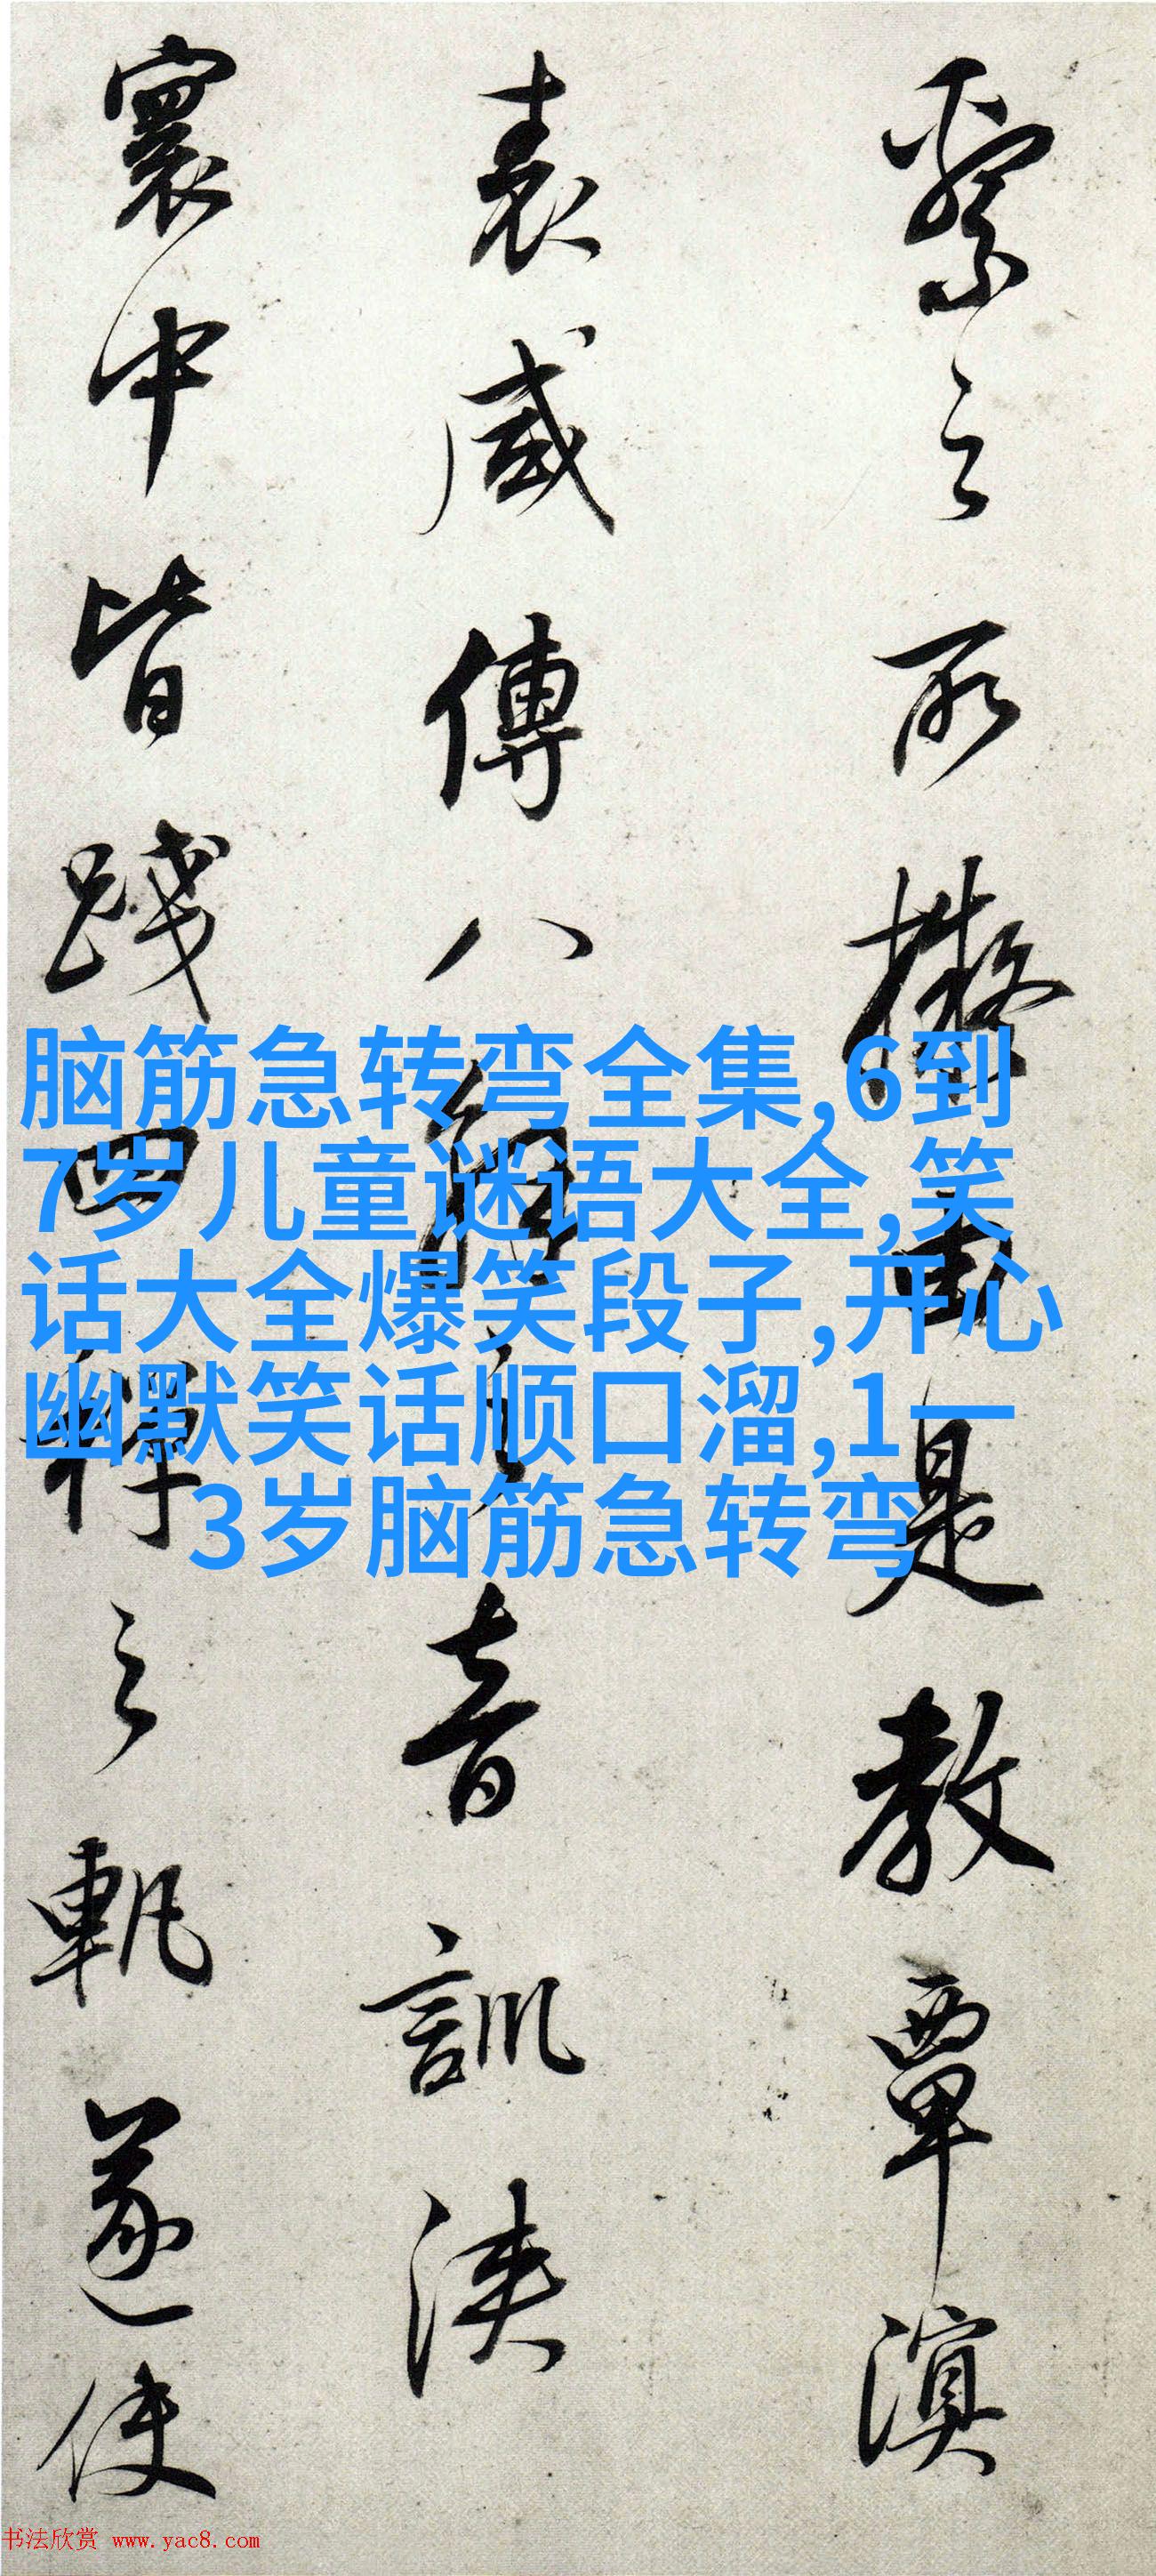 繄之所擬由是教覃溟
表咸傳八解之音訓浹
寰中皆踐四禪之軌遂使
脑筋急转弯全集,6到
7岁儿童谜语大全,笑
话大全爆笑段子,开心
幽默笑话顺口溜,1一
3岁脑筋急转弯
书法欣赏 www.yac8.com